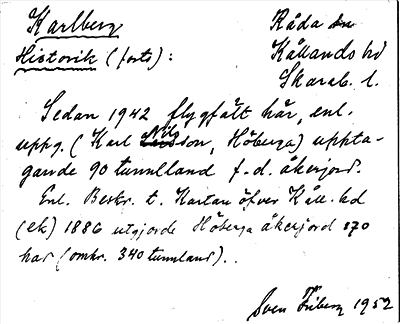 Karlberg
Råda sn
Historik (forts):
Kållands hd
Skarab. l.
Sedan 1942 flygfält här, enl.
uppg. (Karl Nilsson, Höberga) uppta-
gande 90 tunnlland f.d. åkerjord.
Enl. Beskr. t. Kartan öfver Kåll. hd
(ek) 1886 utgjorde Höberga åkerjord 170
har (omkr. 340 tunnland).
Sven Friberg 1952